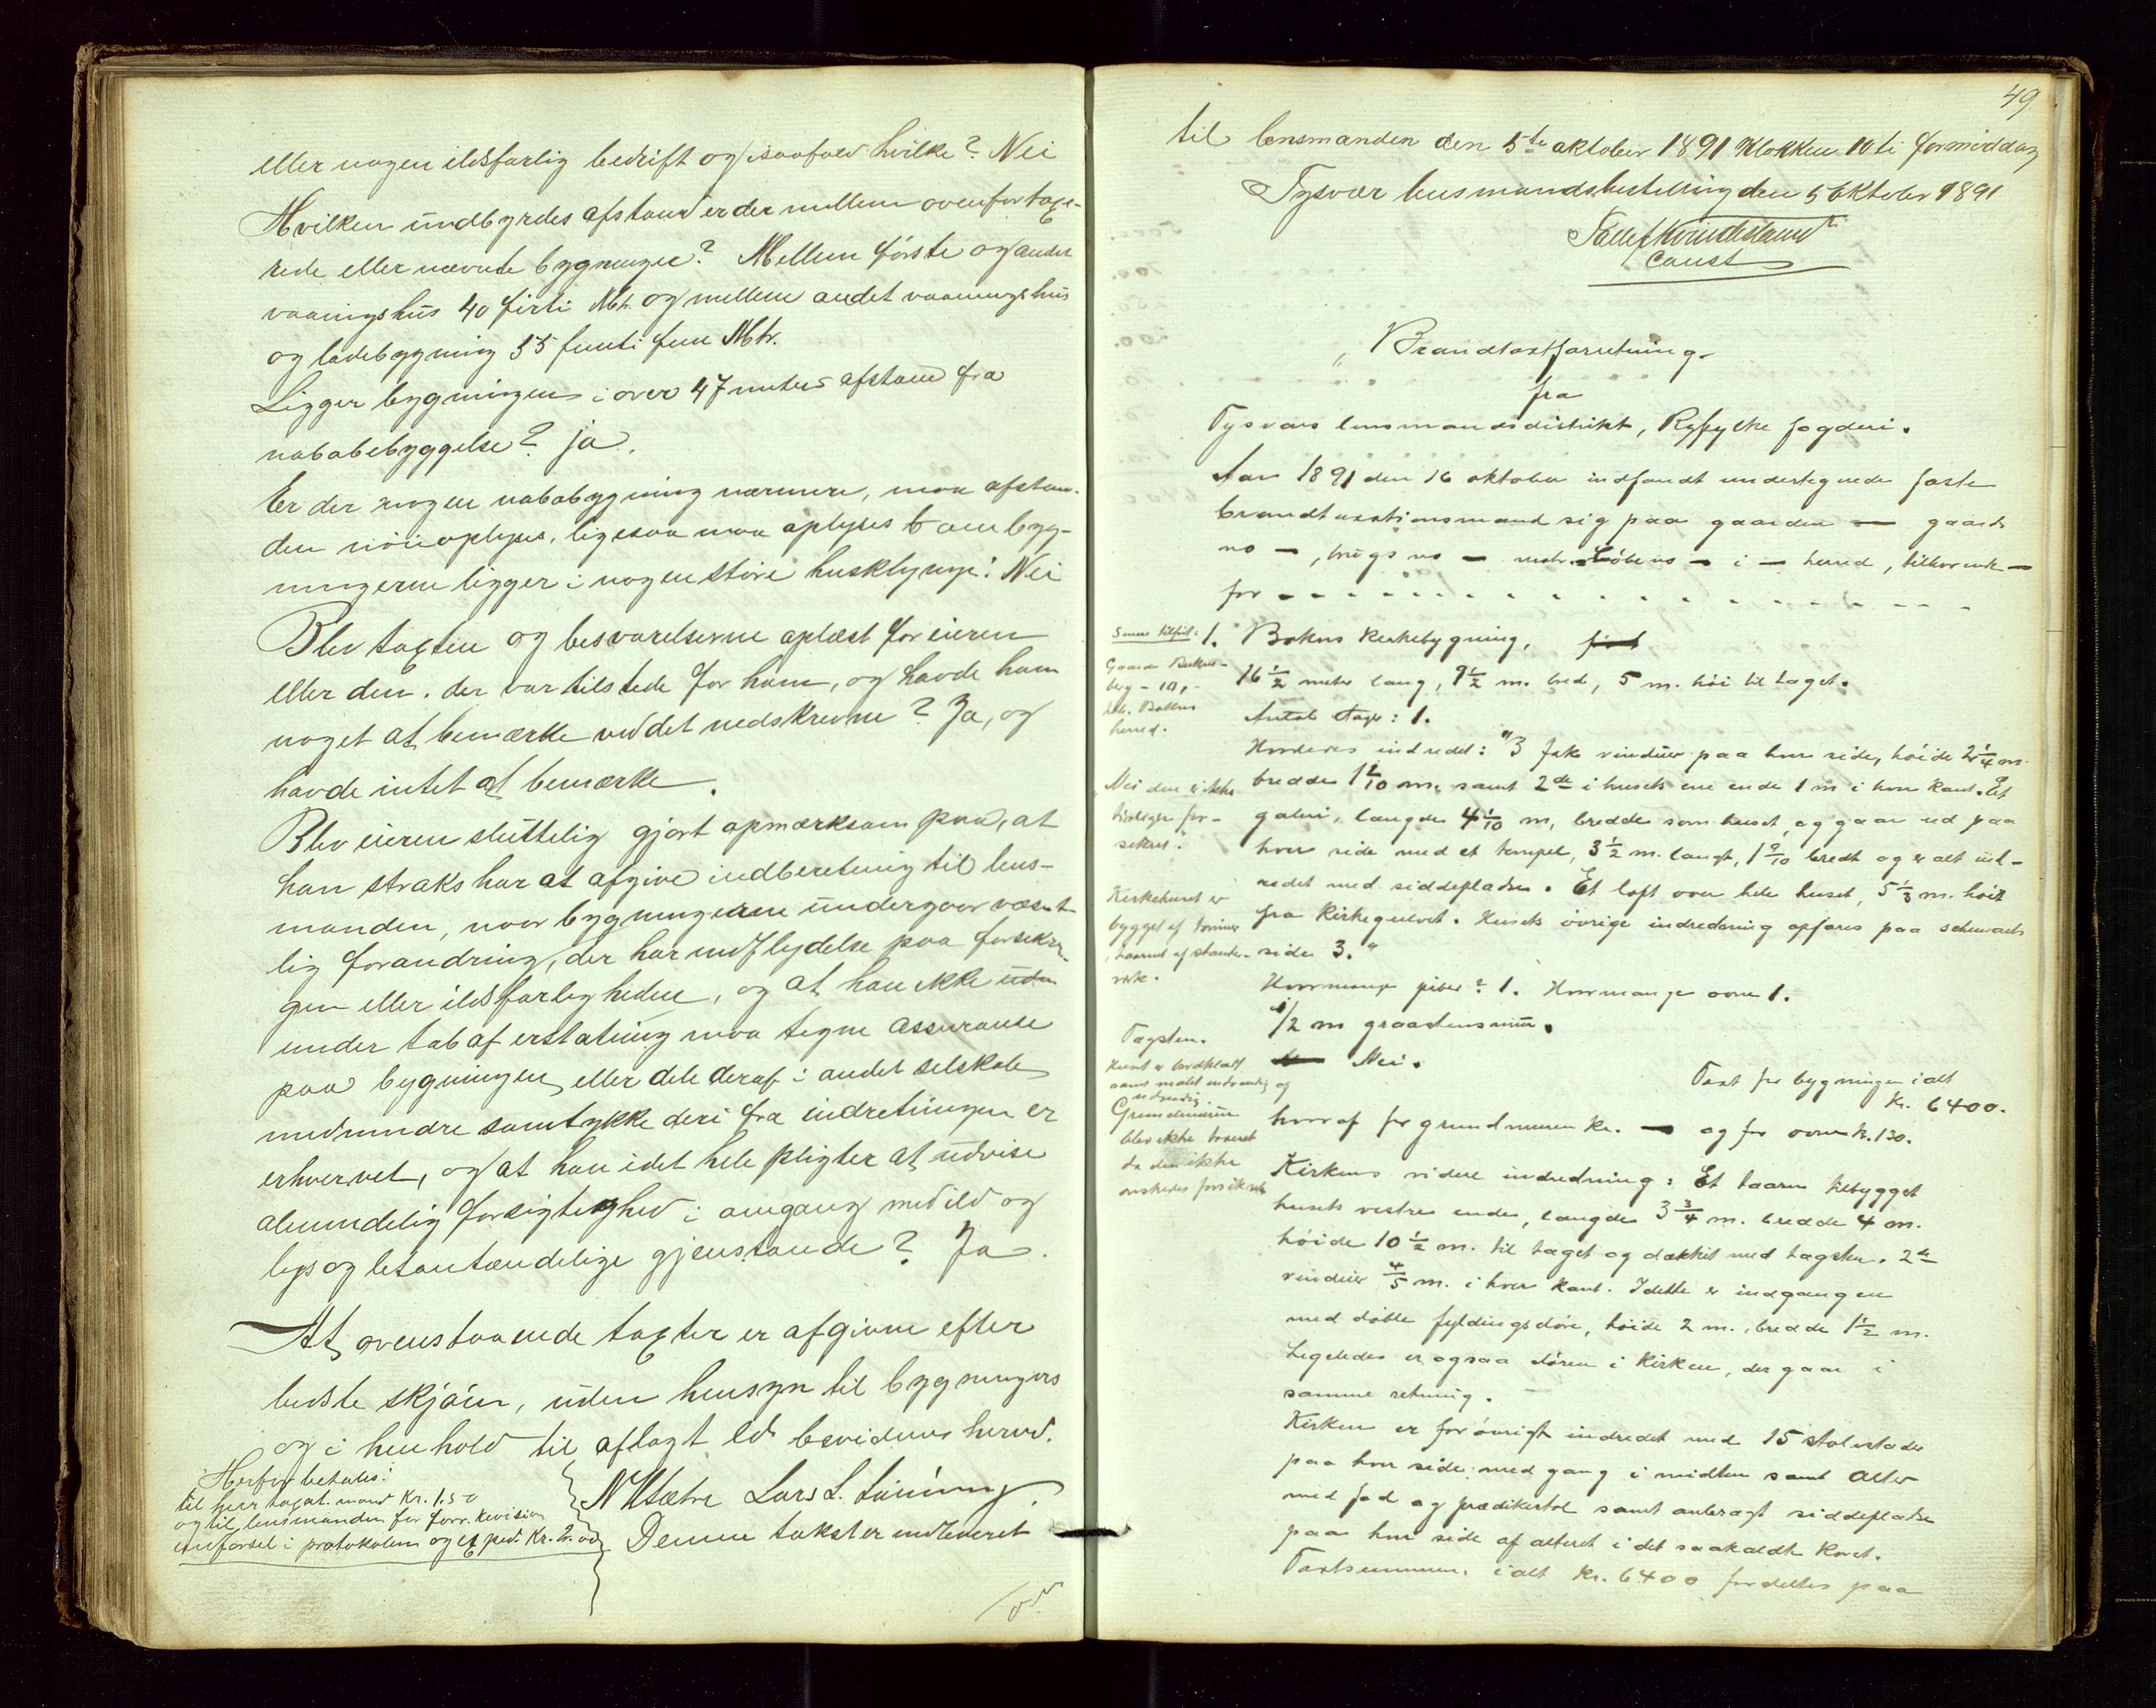 eller nogen ildsfarlig bedrift og isaafald hvilke? Nei
Hvilken indbyrdes afstand er der mellem ovenfor taxe-
rede eller nævnte bygninger? Mellem første og andet
vaaningshus 40 firti Mtr. og mellem andet vaaningshus
og ladebygning 55 femti fem Mtr.
Ligger bygningen i over 47 meters afstand fra
nabobebyggelse? ja.
Er der nogen nabobygning nærmere, maa afstan-
den nøie oplyses, ligesaa maa oplyses om byg-
ningerne ligger i nogen større husklynge? Nei
Blev taxten og besvarelserne oplæst for eieren
eller den, der var tilstede for ham, og havde ham
noget at bemærke ved det nedskrevne? Ja, og
havde intet at bemærke.
Blev eieren sluttelig gjort opmærksom paa, at
han straks har at afgive indberetning til lens-
manden, naar bygningerne undergaar væsent-
lig forandring, der har indflydelse paa forsikrin-
gen eller ildsfarligheden, og at han ikke uden
under tab af erstatning maa tegne assuranse
paa bygningen eller dele deraf i andet selskab
medmindre samtykke deri fra indretningen er
erhvervet, og at han i det hele pligter at udvise
almindelig forsigtighed i omgang med ild og
lys og letantændelige gjenstande? Ja.
At ovenstaaende taxter er afgivne efter
bedste skjøn, uden hensyn til bygningers
og i henhold til aflagt ed bevidnes herved.
Herfor betales:
til hver taxat. mand Kr. 1,50
og til lensmanden for forr. revision
indførsel i protokolen og exped. Kr. 2.00
N Sætre Lars L.
Denne takst er indleveret
49.
til lensmanden den 5te oktober 1891 Klokken 10 ti formiddag
Tysvær lensmandsbestilling den 5 Oktober 1891
const
"Brandtaxtforretning.
fra
Tysvær lensmandsdistrikt, Ryfylke fogderi.
Aar 1891 den 16 oktober indfandt undertegnede faste
brandtaxtionsmænd sig paa gaarden — gaards
no —, brugs no — matr. Løbe no — i — herred, tilhørende —
for - - - - - - - - - - - - - - - -
1. Bokns Kirkebygning,
16 1/2 meter lang, 9 1/2 m. bred, 5 m. høi til taget.
Antal etager: 1.
Hvorledes indredet: "3 fak vinduer paa hver side, høide 2 1/4 m.
bredde 1 2/10 m, samt 2de i husets ene ende 1 m i hver kant. Et
galeri, længde 4 1/10 m, bredde som huset, og gaar ud paa
hver side med et tempel, 3 1/2 m. langt, 1 9/10 bredt og er alt ind-
redet med siddepladse. Et loft over hele huset, 5 1/3 m. høit
fra Kirkegulvet. Husets øvrige indredning opføres paa schemaets
side 3."
Hvormange piber? 1. Hvormange ovne 1.
1/2 m graastensmur.
Nei.
Taxt for bygningen ialt
Kr. 6400.
hvoraf for grundmuren Kr. — og for ovnen Kr. 130.
Kirkens videre indredning: Et taarn tilbygget
husets vestre ende, længde 3 3/4 m. bredde 4 m.
høide 10 1/2 m. til taget og dækket med tagsten. 2de
vinduer 4/5 m. i hver kant. I dette er indgangen
med doble fyldingsdøre, høide 2 m., bredde 1 1/2 m.
Ligeledes er ogsaa døren i Kirken, der gaar i
samme retning.
Kirken er forøvrigt indredet med 15 stolestader
paa hver side med gang i midten samt Alter
med fod og prædikestol samt anbragt siddepladse
paa hver side af alteret i det saakaldte Koret.
Taxtsummen ialt Kr. 6400 fordeltes paa
Senere tilføiet:
Gaarden
berg - 10,-
Bokns
herred.
"Nei den er ikke
tidligere for-
sikret.
Kirkehuset er
bygget af tømmer
, taarnet af stander-
verk.
Tagsten.
Huset er bordklædt
samt malet indvendig og
udvendig.
Grundmuren
blev ikke taxeret
da den ikke
ønskedes forsikret